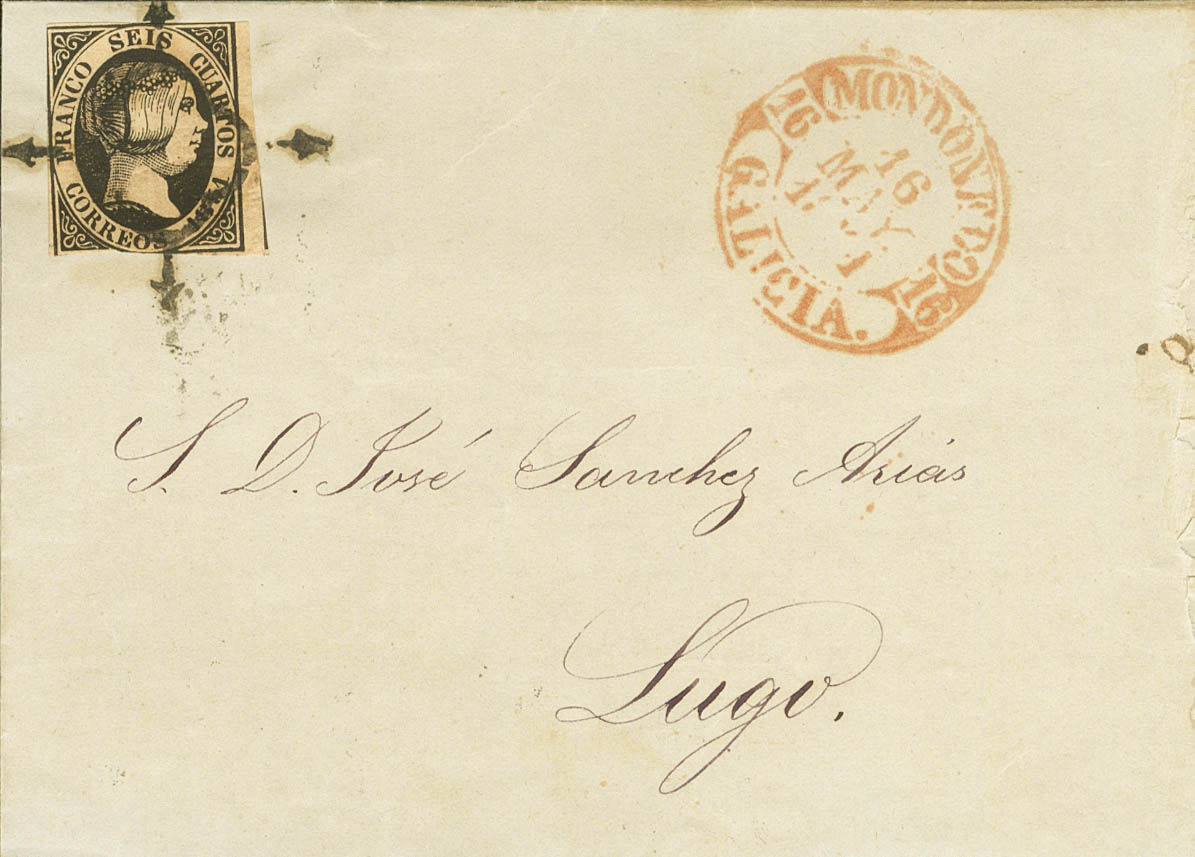 FRANCO SEIS CUARTOS
CORREOS 1851
MONDOÑEDO
16
16 MAY.
GALICIA.
16
S. D. José Sanchez Arias
Lugo.